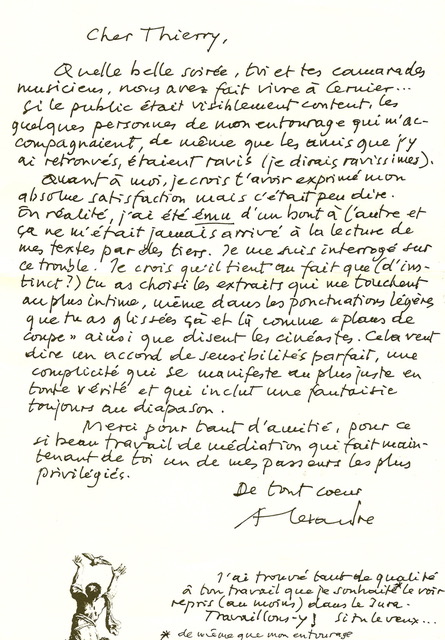 Cher Thierry,
Quelle belle soirée, toi et tes camarades
musiciens, nous avez fait vivre à Cernier...
Si le public était visiblement content, les
quelques personnes de mon entourage qui m'ac-
compagnaient, de même que les amis que j'y
ai retrouvés, étaient ravis (je dirais ravissimes).
Quant à moi, je crois t'avoir exprimé mon
absolue satisfaction mais c'était peu dire.
En réalité, j'ai été ému d'un bout à l'autre et
ça ne m'était jamais arrivé à la lecture de
mes textes par des tiers. Je me suis interrogé sur
ce trouble. Je crois qu'il tient au fait que (d'ins-
tinct?) tu as choisi les extraits qui me touchent
au plus intime, même dans les ponctuations légères
que tu as glissées çà et là comme « plans de
coupe » ainsi que disent les cinéastes. Cela veut
dire un accord de sensibilités parfait, une
complicité qui se manifeste au plus juste en
toute vérité et qui inclut une fantaisie
toujours au diapason.
Merci pour tant d'amitié, pour ce
si beau travail de médiation qui fait main-
tenant de toi un de mes passeurs les plus
privilégiés.
De tout coeur
Alexandre
J'ai trouvé tant de qualité
à ton travail que je souhaite* le voir
repris (au moins) dans le Jura.
Travaillons-y! si tu le veux...
* de même que mon entourage